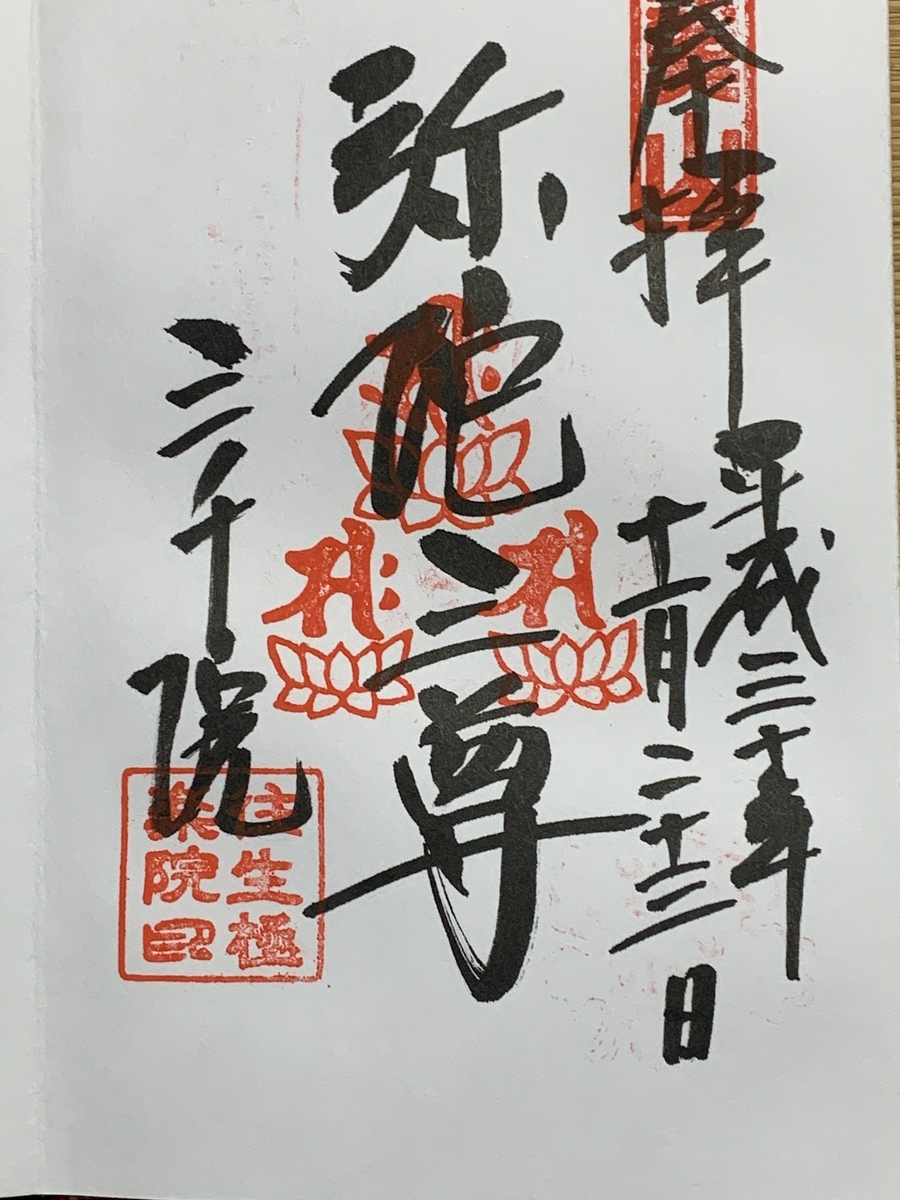 奉拝
平成三十年
十一月二十三日
弥陀三尊
三千院
往生極
楽院印